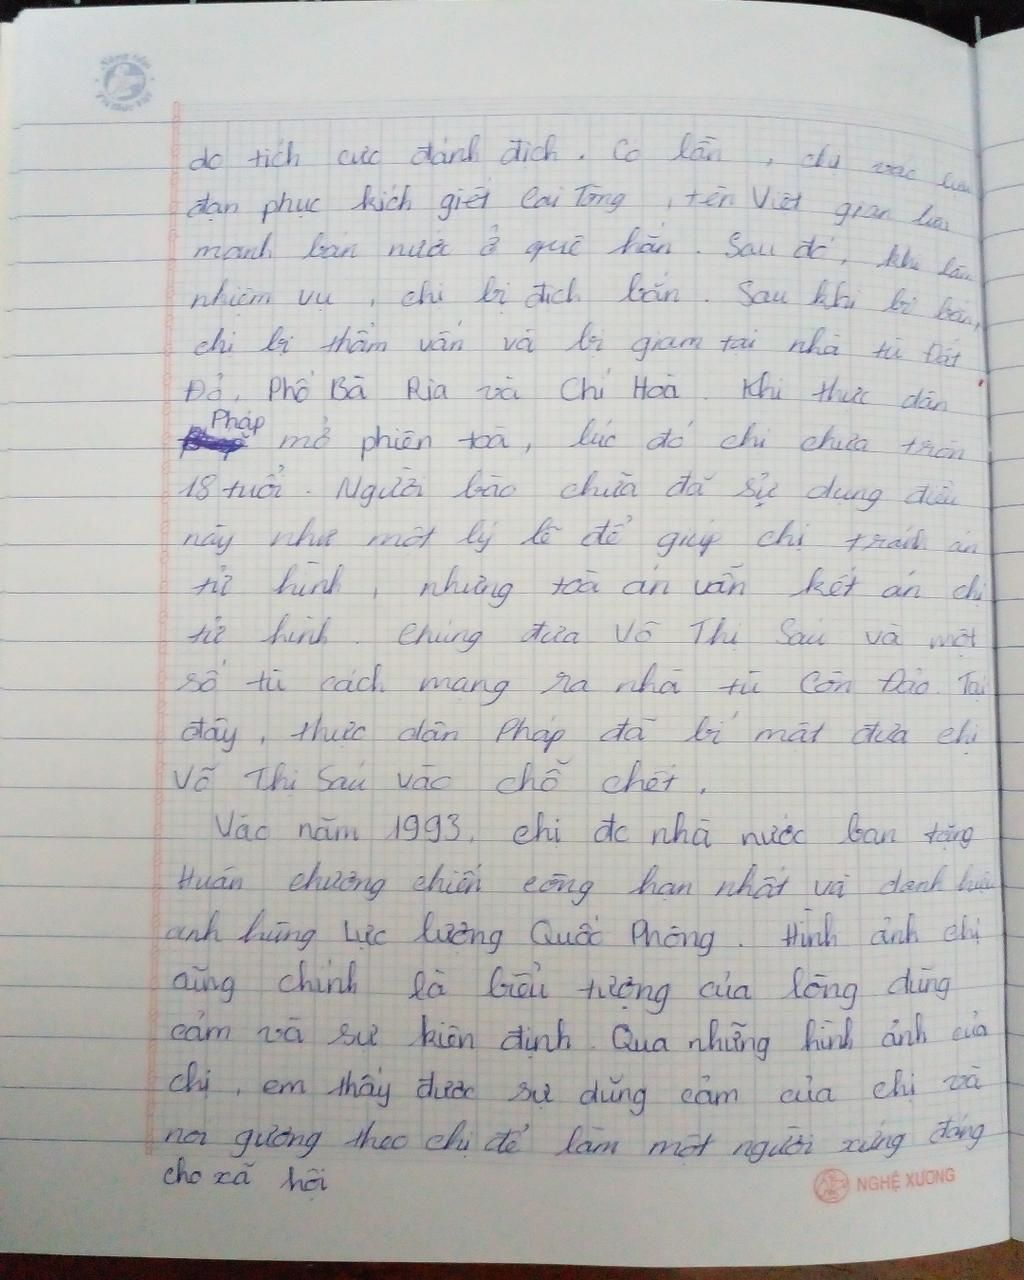 Nâng tầm
Tri thức Việt
dc tích cực đánh địch. Có lần, chị vác lựu
đạn phục kích giết Cai Tòng, tên Việt gian lưu
manh bán nước ở quê hắn. Sau đó, khi làm
nhiệm vụ, chị bị địch bắn. Sau khi bị bắn,
chị bị thẩm vấn và bị giam tại nhà tù Đất
Đỏ, Phố Bà Rịa và Chí Hoà. Khi thực dân
Pháp
mở phiên toà, lúc đó chị chưa tròn
18 tuổi. Người bào chữa đã sử dụng điều
này như một lý lẽ để giúp chị tránh án
tử hình, nhưng toà án vẫn kết án chị
tử hình. Chúng đưa Võ Thị Sáu và một
số tù cách mạng ra nhà tù Côn Đảo. Tại
đây, thực dân Pháp đã bí mật đưa chị
Võ Thị Sáu vào chỗ chết.
Vào năm 1993, chị đc nhà nước ban tặng
Huân chương chiến công hạn nhất và danh hiệu
anh hùng Lực lượng Quốc Phòng. Hình ảnh chị
cũng chính là biểu tượng của lòng dũng
cảm và sự kiên định. Qua những hình ảnh của
chị, em thấy được sự dũng cảm của chị và
noi gương theo chị để làm một người xứng đáng
cho xã hội
NGHỆ XƯƠNG